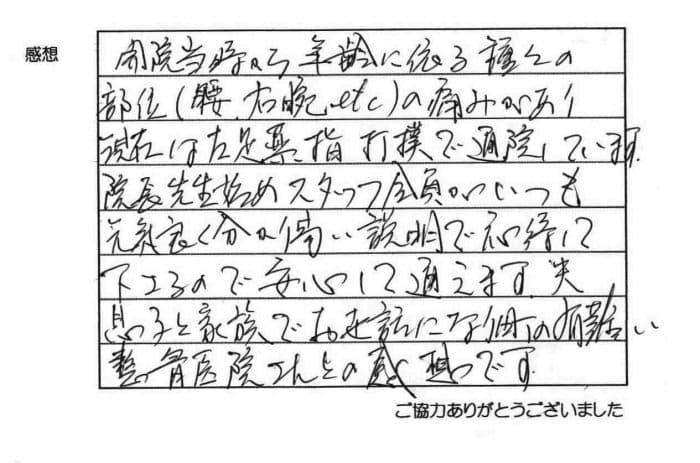 感想
開院当時から年齢に依る種々の
部位(腰、右腕、etc)の痛みがあり
現在は左足第指打撲で通院しています。
院長先生始めスタッフ全員がいつも
元気良く分か易い説明で応待して
下さるので安心して通えます。夫
息子と家族でお世話になり町の有難い
整骨医院さんとの感想です。
ご協力ありがとうございました